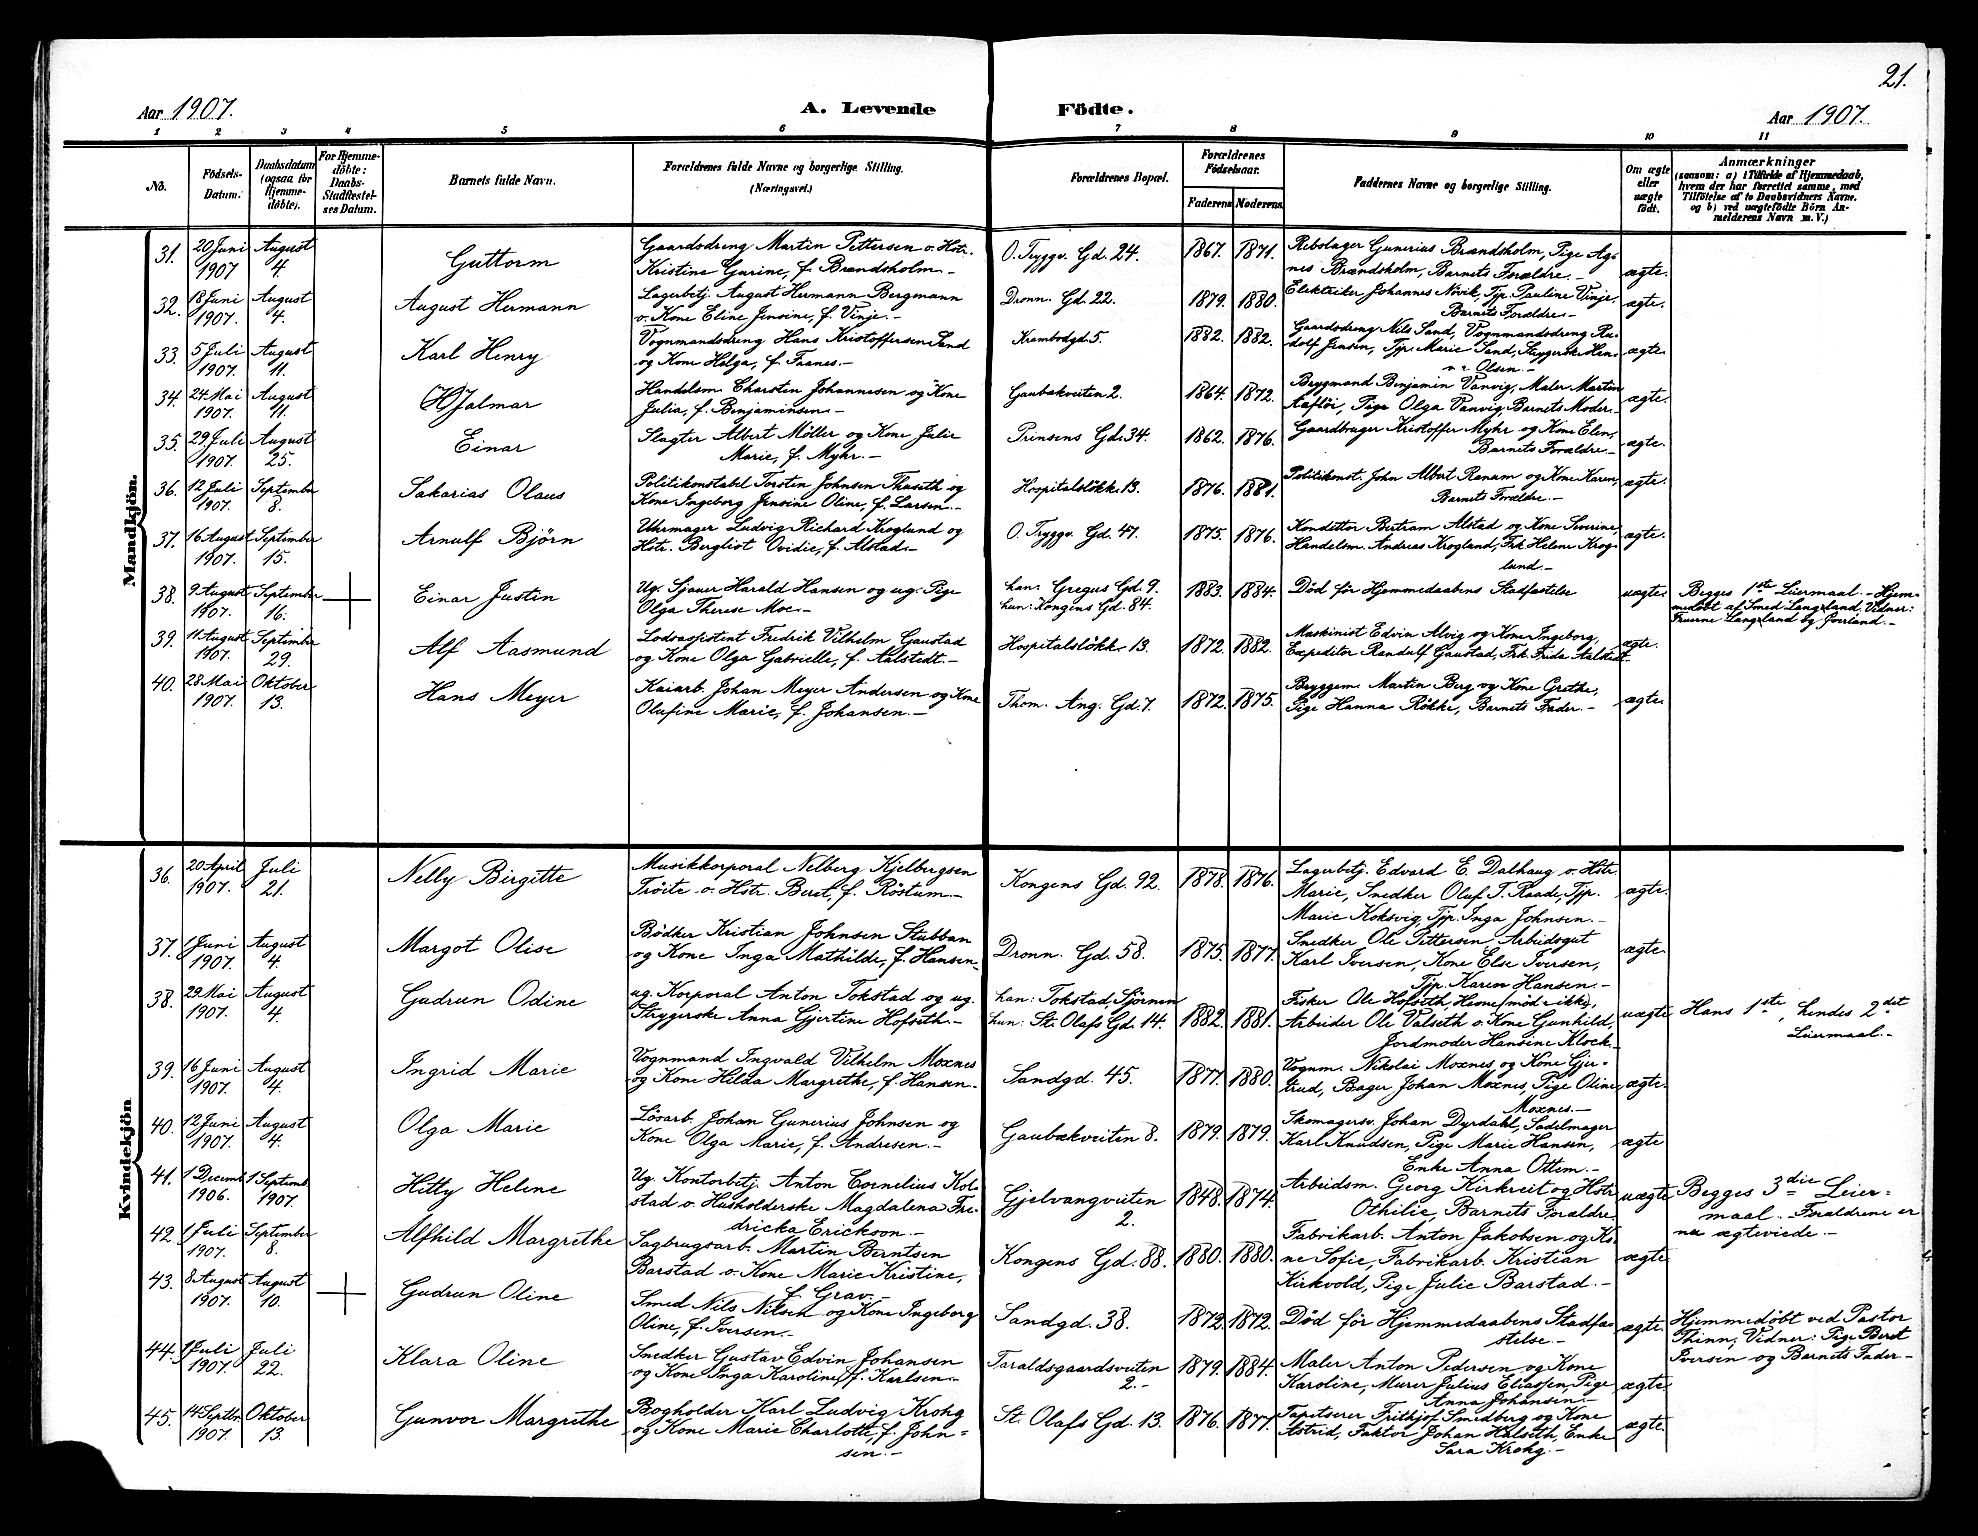 21.
Aar 1907.
A. Levende
Födte.
Aar 1907.
1 2 3 4 5 6 7 8 9 10 11
No.
Födsels-
Datum.
Daabsdatum
(ogsaa for
Hjemme-
døbte).
For Hjemme-
døbte:
Daabs-
Stadfæstel-
ses Datum.
Barnets fulde Navn.
Forældrenes fulde Navne og borgerlige Stilling.
(Næringsvei.)
Forældrenes Bopæl.
Forældrenes
Födselsaar.
Faderens
Moderens
Faddernes Navne og borgerlige Stilling.
Om ægte
eller
uægte
født.
Anmærkninger
(saasom: a) i Tilfælde af Hjemmedaab,
hvem der har forrettet samme, med
Tilføielse af to Daabsvidners Navne.
og b) ved uægtefødte Börn An-
melderens Navn m. V.)
Mandkjön.
31. 20 Juni 1907 August 4. Guttorm
Gaardsdreng Martin Pettersen o. Hstr.
Kristine Gurine, f. Brandsholm.-
O. Tryggv. Gd. 24. 1867. 1871.
Rebslager Gunerius Brandsholm, Pige Ag-
nes Brændsholm, Barnets Forældre.-
ægte.
32. 18 Juni 1907. August 4. August Hermann
Lagerbetj. August Hermann Bergmann
o. Kone Eline Jensine, f. Vinje.-
Dronn. Gd. 22. 1879. 1880.
Elektriker Johannes Növik, Tjp. Pauline Vinje,
Barnets Forældre.-
ægte.
33. 5 Juli 1907. August 11. Karl Henry
Vognmandsdreng Hans Kristoffersen Sand
og Kone Helga, f. Faanes.-
Krambodgd. 5. 1882. 1882.
Gaardsdreng Nils Sand, Vognmandsdreng Ru-
dolf Jensen, Tjp. Marie Sand, Strygerske Han-
na Olsen.-
ægte.
34. 24 Mai 1907. August 11. Hjalmar
Handelsm. Charsten Johannesen og Kone
Julia, f. Benjaminsen.-
Gaubækveiten 2. 1864. 1872.
Brygmand Benjamin Vanvig, Maler Martin
Aafløi, Pige Olga Vanvig, Barnets Moder.-
ægte.
35. 29 Juli 1907. August 25. Einar
Slagter Albert Möller og Kone Julie
Marie, f. Myhr.-
Prinsens Gd. 34. 1862. 1876.
Gaardbruger Kristoffer Myhr og Kone Elen,
Barnets Forældre.-
ægte.
36. 12 Juli 1907. September 8. Sakarias Olaus
Politikonstabel Torstin Johnsen Thseth og
Kone Ingeborg Jensine Oline, f. Larsen.-
Hospitalsløkk. 13. 1876. 1881.
Politikonst. John Albert Ranum og Kone Karen,
Barnets Forældre.-
ægte.
37. 16 August 1907. September 15. Arnulf Björn
Uhrmager Ludvig Richard Kroglund og
Hstr. Bergliot Ovidie, f. Alstad.-
O. Tryggv. Gd. 47. 1875. 1876.
Konditor Bertram Alstad og Kone Severine,
Handelsm. Andreas Krogland, Frk. Helene Krog-
lund.-
ægte.
38. 9 August 1907. September 16. Einar Justin
Ug. Sjauer Harald Hansen og ug. Pige
Olga Therese Moe.-
han: Gregus Gd. 9.
hun: Kongens Gd. 84.
1883. 1884.
Død før Hjemmedaabens Stadfæstelse
uægte.
Begges 1ste Leiermaal.- Hjem-
medøbt af Smed Langeland, Vidner:
Fruerne Langeland og Joerland.-
39. 11 August 1907. September 29. Alf Aasmund
Lodsassistent Fredrik Vilhelm Gaustad
og Kone Olga Gabrielle, f. Aalstedt.-
Hospitalsløkk. 13. 1872. 1882.
Maskinist Edvin Alvig og Kone Ingeborg,
Expeditør Randulf Gaustad, Frk. Frida Aalstedt.
ægte.
40. 28 Mai 1907. Oktober 13. Hans Meyer
Kaiarb. Johan Meyer Andersen og Kone
Olufine Marie, f. Johansen.-
Thom. Ang. Gd. 7. 1872. 1875.
Bryggem. Martin Berg og Kone Grethe,
Pige Hanna Røkke, Barnets Fader.-
ægte.
Kvindekjön
36. 20 April 1907. Juli 21. Nelly Birgitte
Musikkorporal Nelberg Kjelbergsen
Tröite o. Hstr. Beret, f. Röstum.-
Kongens Gd. 92. 1878. 1876.
Lagerbetj. Edvard E. Dalhaug o. Hstr.
Marie, Snedker Oluf T. Raade, Tjp.
Marie Koksvig, Tjp. Inga Johnsen.-
ægte.
37. 1 Juni 1907. August 4. Margot Olise
Bødker Kristian Johnsen Stubban
og Kone Inga Mathilde, f. Hansen.-
Dronn. Gd. 58. 1875. 1877.
Snedker Ole Pettersen Arbeidsgut
Karl Iversen, Kone Else Iversen,
Tjp. Karen Hansen.-
ægte.
38. 29 Mai 1907. August 4. Gudrun Odine
ug. Korporal Anton Tokstad og ug.
Strygerske Anna Gjertine Hofseth.-
han: Tokstad, Sjörnen
hun: St. Olafs Gd. 14.
1882. 1881.
Fisker Ole Hofseth Hevne (mød. ikke),
Arbeider Ole Valseth o. Kone Gunhild,
Jordmoder Hansine Klock.-
uægte
Hans 1ste, hendes 2det
Leiermaal.-
39. 16 Juni 1907. August 4. Ingrid Marie
Vognmand Ingvald Vilhelm Moxnes
og Kone Hilda Margrethe, f. Hansen.-
Sandgd. 45. 1877. 1880.
Vognm. Nikolai Moxnes og Kone Gjer-
trud, Bager Johan Moxnes, Pige Oline
Moxnes.-
ægte.
40. 12 Juni 1907. August 4. Olga Marie
Løsarb. Johan Gunerius Johnsen og
Kone Olga Marie, f. Andresen.-
Gaubækveiten 8. 1879. 1879.
Skomagersv. Johan Dyrdahl, Sadelmager
Karl Knudsen, Pige Marie Hansen,
Enke Anna Ottem.-
ægte
41. 1 Decemb. 1906. 1 Septemb. 1907. Hitty Helene
Ug. Kontorbetj. Anton Cornelius Kol-
stad o. Husholderske Magdalena Fre-
dricka Erickson.-
Gjelvangveiten
2.
1848. 1874.
Arbeidsm. Georg Kirkreit og Hstr
Othilie, Barnets Forældre.
uægte
Begges 3die Leier-
maal. Forældrene er
nu ægteviede.-
42. 1 Juli 1907. September 8. Alfhild Margrethe
Sagbrugsarb. Martin Berntsen
Barstad o. Kone Marie Kristine,
f. Grav.-
Kongens Gd. 88. 1880. 1880.
Fabrikarb. Anton Jakobsen og Ko-
ne Sofie, Fabrikarb. Kristian
Kirkvold, Pige Julie Barstad.-
ægte
43. 8 August 1907. August 10. Gudrun Oline
Smed Nils Nilsen og Kone Ingeborg
Oline, f. Iversen.-
Sandgd. 38. 1872. 1872.
Død før Hjemmedaabens Stadfæ-
stelse.-
ægte.
Hjemmedøbt ved Pastor
Thinn, Vidner: Pige Beret
Iversen og Barnets Fader.-
44. 1 Juli 1907. Juli 22. Klara Oline
Snedker Gustav Edvin Johansen
og Kone Inga Karoline, f. Karlsen.-
Taraldsgaardsveiten
2.-
1879. 1884.
Maler Anton Pedersen og Kone
Karoline, Murer Julius Eliassen, Pige
Anna Johansen.-
ægte
45. 14 Septbr. 1907. Oktober 13. Gunvor Margrethe
Bogholder Karl Ludvig Krohg
og Kone Marie Charlotte, f. John-
sen.-
St. Olafs Gd. 13. 1876. 1877.
Tapetserer Frithjof Smedberg og Kone
Astrid, Faktor Johan Halseth, Enke
Sara Krohg.-
ægte.